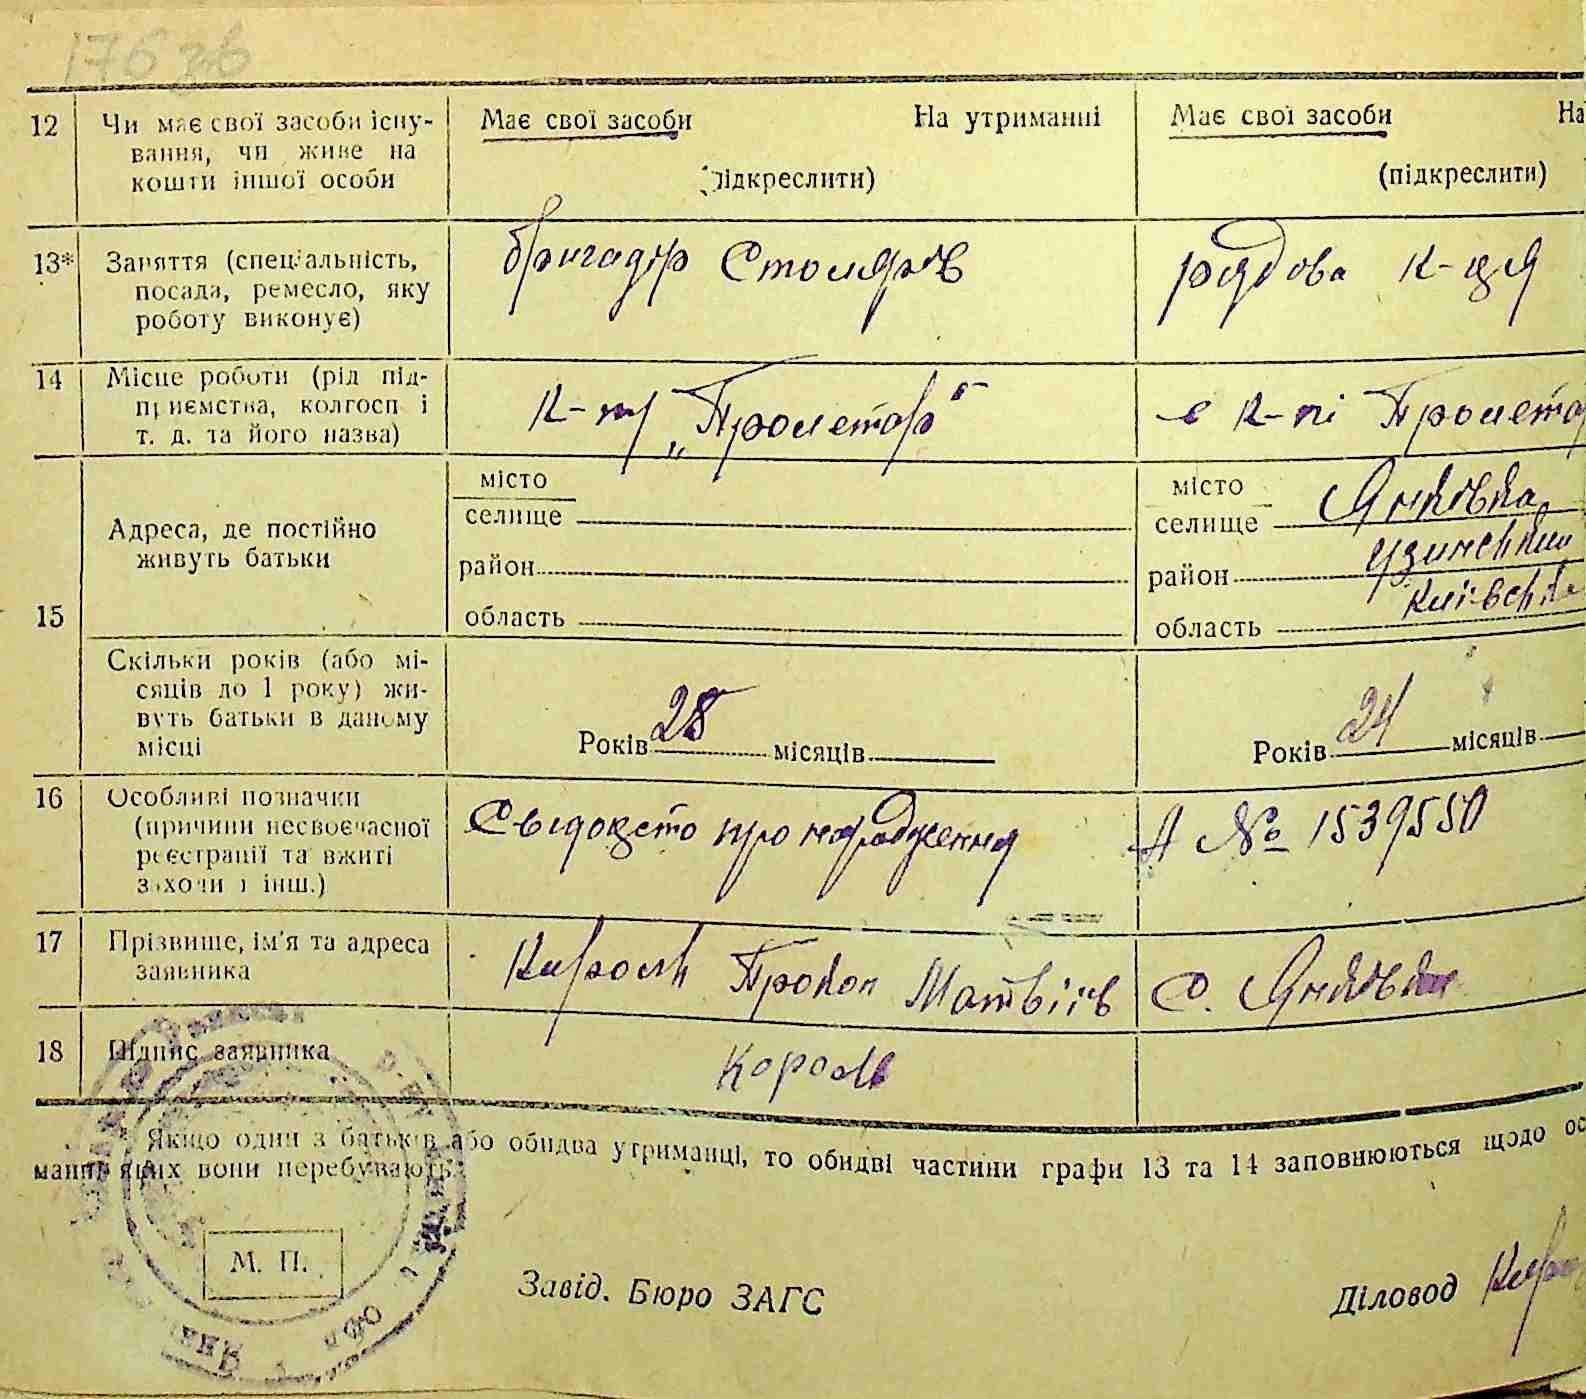 176 зв
12 Чи має свої засоби існу-
вання, чи живе на
кошти іншої особи
Має свої засоби На утриманні
(підкреслити)
Має свої засоби На
(підкреслити)
13* Заняття (спеціальність,
посада, ремесло, яку
роботу виконує)
бригадір Столярів
рядова к-ця
14 Місце роботи (рід під-
приємства, колгосп і
т. д. та його назва)
К-т „Пролетар"
в к-пі Пролетар
15
Адреса, де постійно
живуть батьки
місто
селище
район
область
місто
селище Яньківка
район Узинський
область Київська
Скільки років (або мі-
сяців до 1 року) жи-
вуть батьки в даному
місці
Років 28 місяців
Років 24 місяців
16 Особливі позначки
(причини несвоєчасної
реєстрації та вжиті
заходи і інш.)
Свідоцтво про народження А № 1539550
17 Прізвище, ім'я та адреса
заявника
Король Прокоп Матвіїв с. Яньківка
18 Підпис заявника
Король
* Якщо один з батьків або обидва утриманці, то обидві частини графи 13 та 14 заповнюються щодо ос
манні яких вони перебувають.
М. П.
Завід. Бюро ЗАГС
Діловод